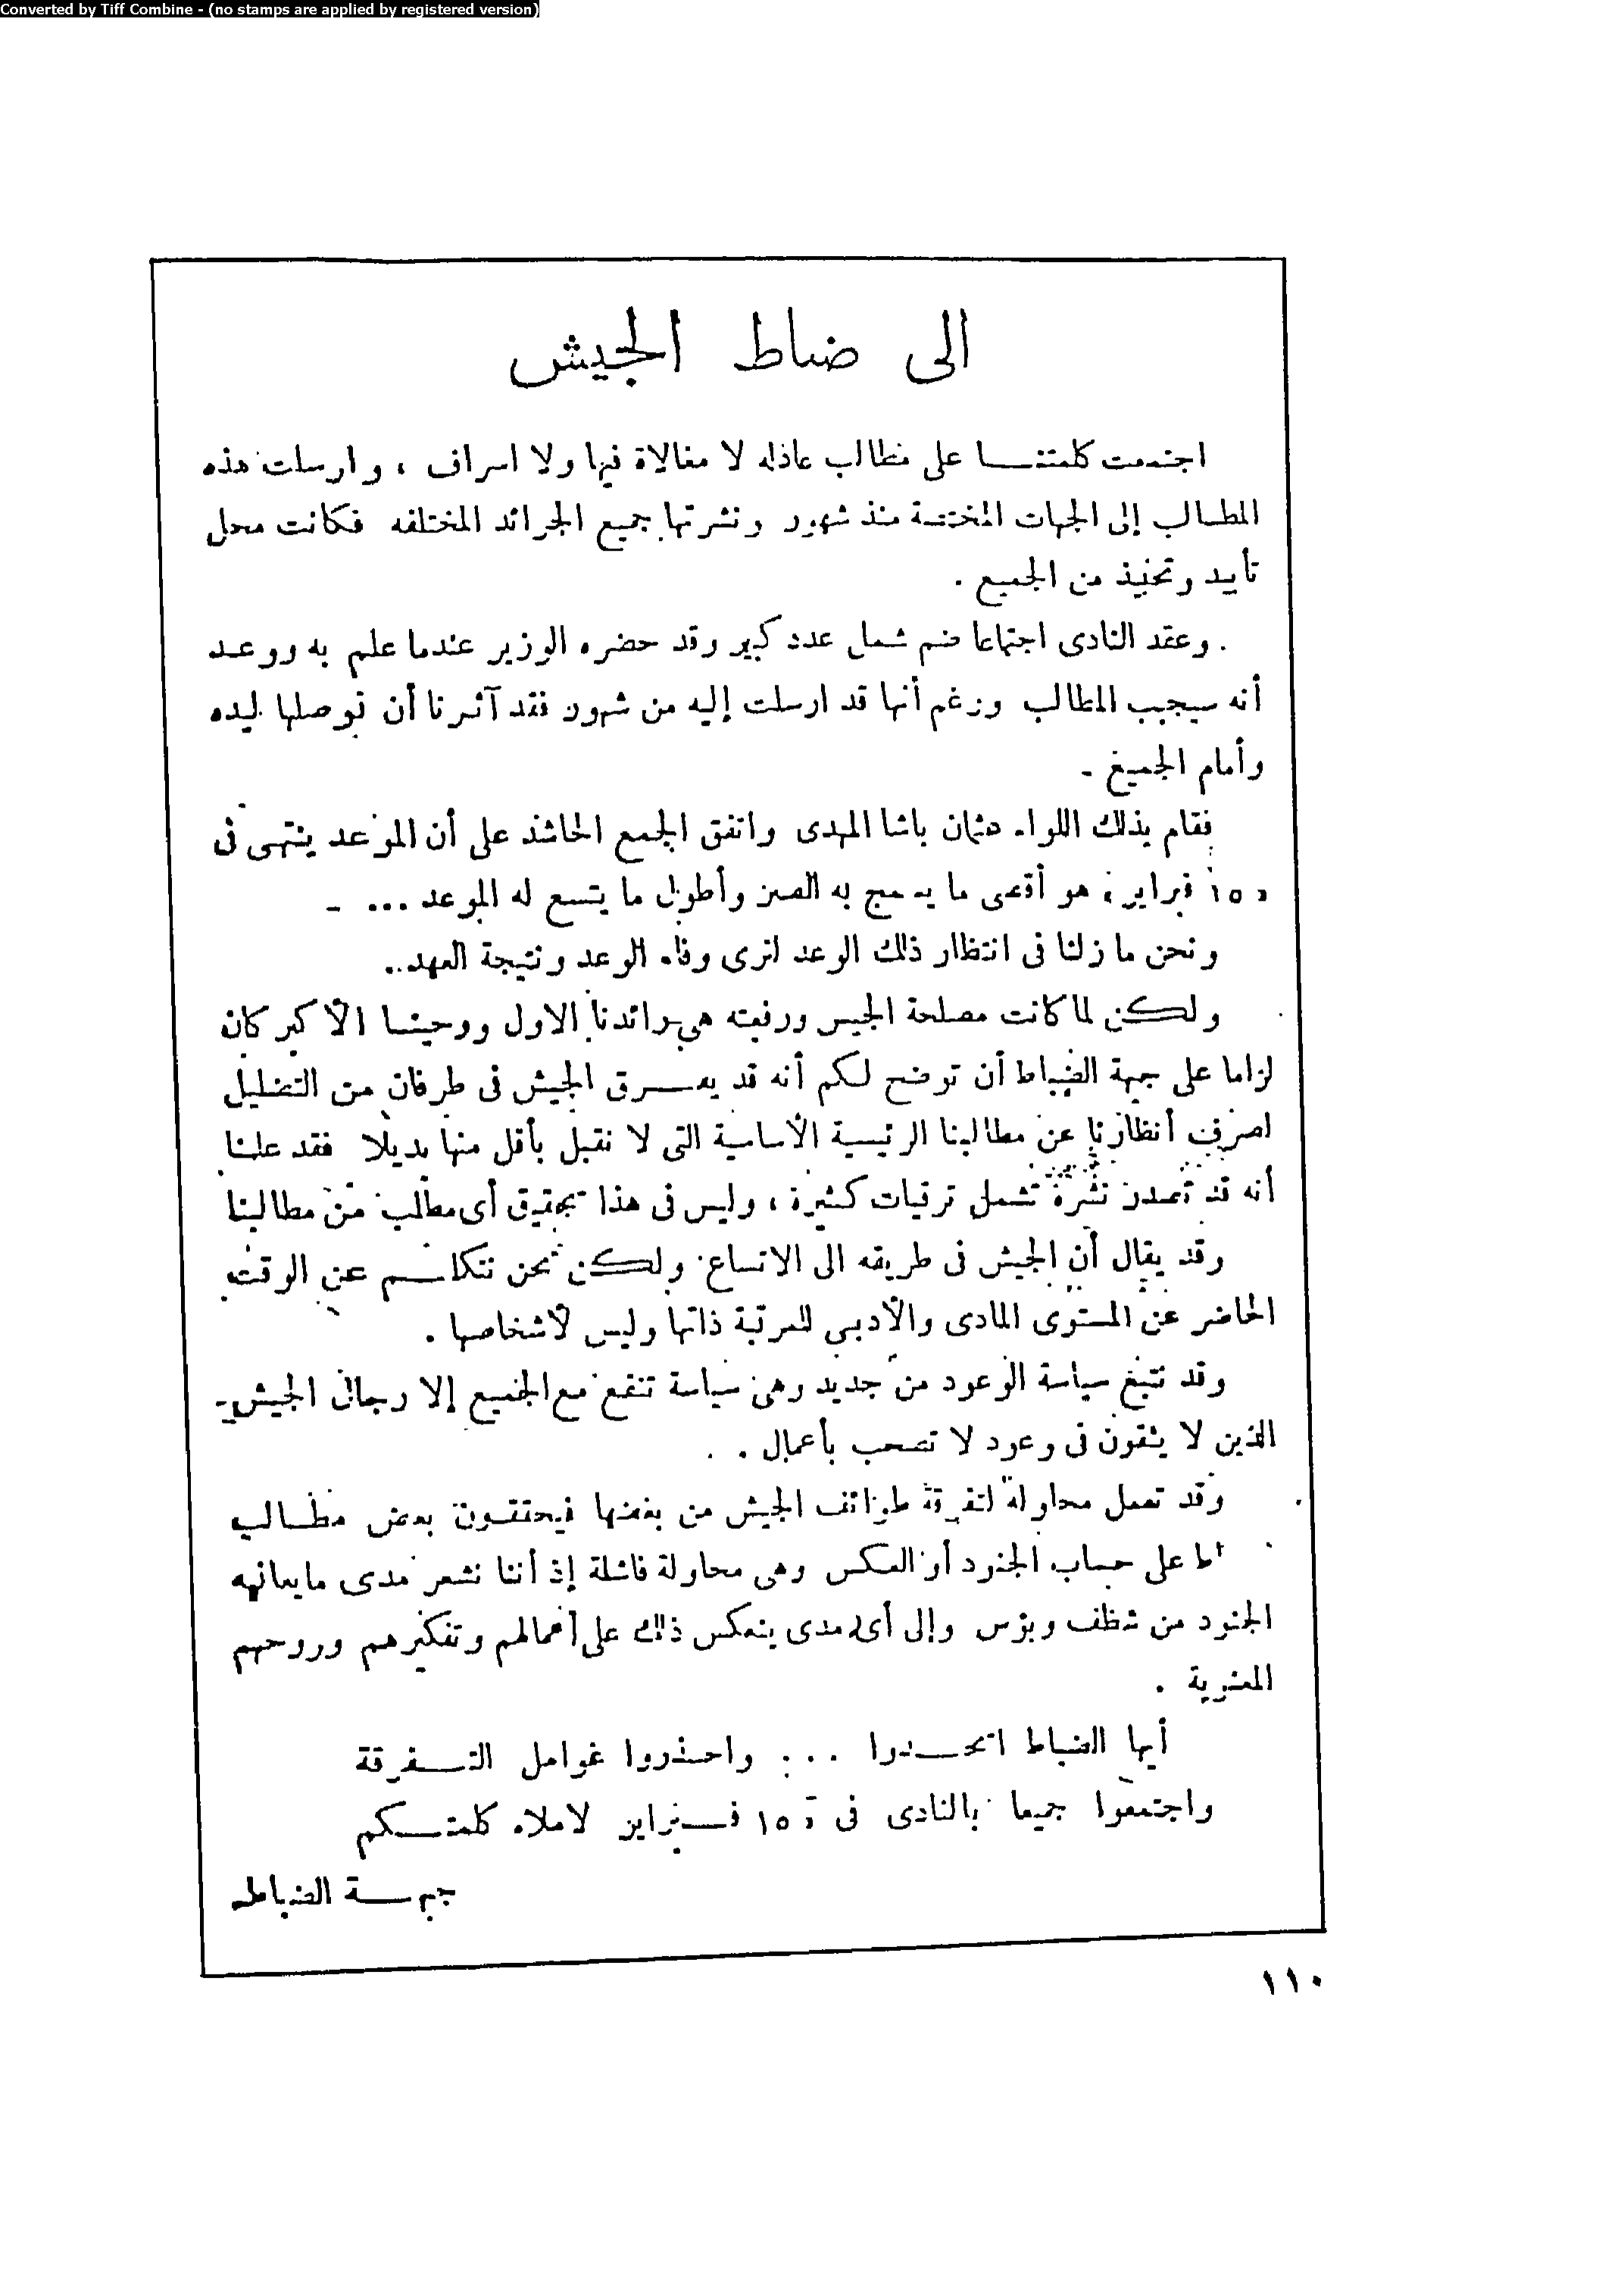 Converted by Tiff Combine - (no stamps are applied by registered version)
الى ضباط الجيش
اجتمعت كلمتنا على مطالب عادله لا مغالاة فيها ولا اسراف ، وارسلت هذه
المطالب إلى الجهات المختصة منذ شهور ونشرتها جميع الجرائد المختلفه فكانت محل
تأييد وتحبيذ من الجميع .
وعقد النادى اجتماعا ضم شمل عدد كبير وقد حضره الوزير عندما علم به ووعد
أنه سيجيب المطالب ورغم أنها قد ارسلت إليه من شهور فقد آثرنا أن نوصلها ليده
وأمام الجميع -
فقام بذلك اللواء عثمان باشا المهدى واتفق الجمع الحاشد على أن الموعد ينتهى فى
١٥ فبراير ، هو أقصى ما يسمح به الصبر وأطول ما يتسع له الموعد ... -
ونحن ما زلنا فى انتظار ذلك الوعد لنرى وفاء الوعد ونتيجة العهد ..
ولكن لما كانت مصلحة الجيش ورفعته هى رائدنا الاول ووحينا الأكبر كان
لزاما على جبهة الضباط أن توضح لكم أنه قد يغرق الجيش فى طوفان من التضليل
لصرف أنظارنا عن مطالبنا الرئيسية الأساسية التى لا نقبل بأقل منها بديلا فقد علمنا
أنه قد تصدر نشرة تشمل ترقيات كثيرة ، وليس فى هذا تحقيق أى مطلب من مطالبنا
وقد يقال أن الجيش فى طريقه الى الاتساع ولكن نحن نتكلم عن الوقت
الحاضر عن المستوى المادى والأدبى للمرتبة ذاتها وليس لأشخاصها .
وقد تتبع سياسة الوعود من جديد وهى سياسة تنفع مع الجميع إلا رجال الجيش -
الذين لا يثقون فى وعود لا تصحب بأعمال . .
وقد تعمل محاولة لتفرقة طوائف الجيش من بعضها فيحققون بعض مطالب
على حساب الجنود أو العكس وهى محاولة فاشلة إذ أننا نشعر مدى ما يعانيه
الجنود من شظف وبؤس وإلى أى مدى ينعكس ذلك على أعمالهم وتفكيرهم وروحهم
المعنوية .
أيها الضباط اتحدوا ... واحذروا عوامل التفرقة
واجتمعوا جميعا بالنادى فى ١٥ فبراير لاملاء كلمتكم
جبهة الضباط
١١٠